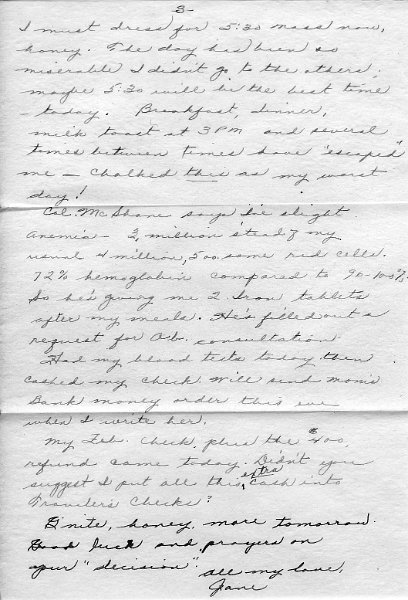 3-
I must dress for 5:30 mass now,
honey. The day has been so
miserable I didn't go to the others;
maybe 5:30 will be the best time
- today. Breakfast, dinner,
milk toast at 3 PM and several
times between times have "escaped"
me - Chalked this as my worst
day!
Col. McShane says I've slight
Anemia - 2, million 'stead of my
usual 4 million, 500 some red cells.
72% hemoglobin compared to 90-100%.
So he's giving me 2 Iron tablets
after my meals. He's filled out a
request for Ob. consultation.
Had my blood tests today then
cashed my check. Will send Mom's
Bank money order this eve
when I write her.
My Feb. check, plus the $400,
refund came today. Didn't you
suggest I put all this extra cash into
Traveler's Checks?
G'nite, honey, more tomorrow.
Good luck and prayers on
your "decision".
all my love,
Jane